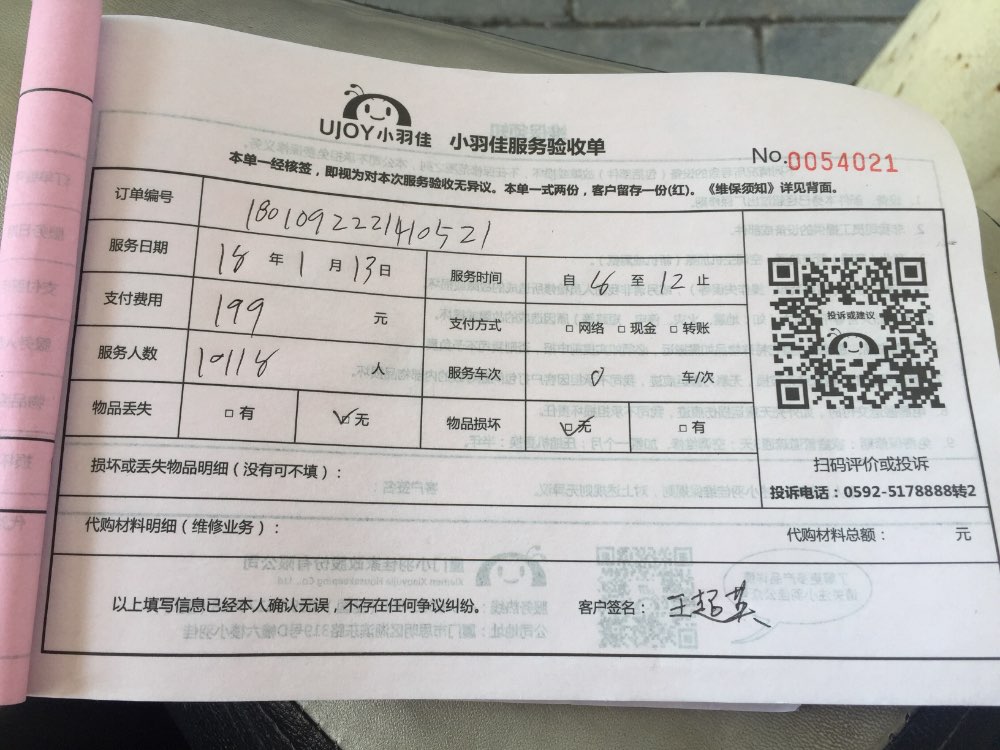 UJOY小羽佳 小羽佳服务验收单
No.0054021
本单一经核签，即视为对本次服务验收无异议。本单一式两份，客户留存一份(红)。《维保须知》详见背面。
订单编号 180109222140521
服务日期 18 年 1 月 13 日 服务时间 自 至 12 止
支付费用 199 元 支付方式 □网络 □现金 □转账
服务人数 10118 人 服务车次 0 车/次
物品丢失 □有 ☑无 物品损坏 ☑无 □有
投诉或建议
扫码评价或投诉
投诉电话：0592-5178888转2
损坏或丢失物品明细（没有可不填）：
代购材料明细（维修业务）： 代购材料总额： 元
以上填写信息已经本人确认无误，不存在任何争议纠纷。 客户签名：王超英